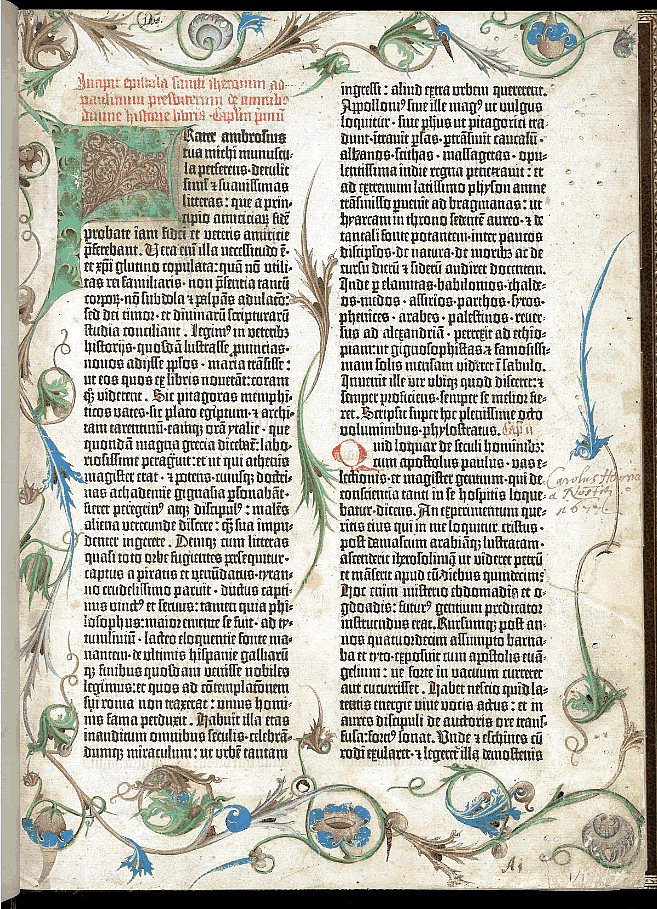 Incipit epistola sancti iheronimi ad
paulinum presbiterum de omnibus
diuine historie libris · Capitulum primū
Frater ambrosius
tua michi munuscu-
la perferens · detulit
simul et suauissimas
litteras: que a prin-
cipio amiciciarū fidē
probate iam fidei et veteris amicicie
p̄ferebant. Vera enī illa necessitudo ē ·
et xp̄i glutino copulata: quā nō utili-
tas rei familiaris · nō p̄sentia tantū
corporꝫ · nō subdola et palpās adulacō:
sed dei timor · et diuinarū scripturarū
studia conciliant. Legimꝰ in veteribꝫ
historijs · quosdā lustrasse ꝓuincias ·
nouos adijsse ppl̄os · maria trāsisse:
ut eos quos ex libris nouerāt: coram
qꝫ viderent. Sic pitagoras memphi-
ticos vates · sic plato egiptum · et archi-
tam tarentinū · eamqꝫ orā ytalie · que
quondā magna grecia dicebat̄: labo-
riosissime peragrauit: et ut qui athenis
magister erat · et potens · cuiusqꝫ doctri-
nas achademie gignasia ꝑsonabāt ·
fieret peregrinꝰ atqꝫ discipulꝰ: malēs
aliena verecunde discere: qꝫ sua impu-
denter ingerere. Deniqꝫ cum litteras
quasi toto orbe fugientes ꝑsequitur ·
captus a piratis et venūdatus · tyran-
no crudelissimo paruit · ductus capti-
uus vinctꝰ et seruus: tamen quia phi-
losophus: maior emente se fuit · ad ty-
tumliuiū · lacteo eloquentie fonte ma-
nantem · de ultimis hispanie galliarū
qꝫ finibus quosdam venisse nobiles
legimus: et quos ad cōtemplacōnem
sui roma non traxerat: unius homi-
nis fama perduxit. Habuit illa etas
inauditum omnibus seculis · celebrā-
dumqꝫ miraculum: ut urbē tantam
ingressi: aliud extra urbem quererent.
Apolloniꝰ siue ille magꝰ ut vulgus
loquitur · siue phūs ut pitagorici tra-
dunt · ītrauit ꝑsas · ꝑtrāsiuit caucasū ·
albanos · scithas · massagetas · opu-
lentissima indie regna penetrauit: et
ad extremum latissimo physon amne
trāsmisso ꝑuenit ad bragmanas: ut
hyarcam in throno sedentē aureo · et de
tantali fonte potantem · inter paucos
discipl̄os · de natura · de moribꝫ ac de
cursu dierū et siderū audiret docentem.
Inde ꝑ elamitas · babilonios · chalde-
os · medos · assirios · parthos · syros ·
phenices · arabes · palestinos · reuer-
sus ad alexandriā · perrexit ad ethio-
piam: ut gignosophistas et famosissi-
mam solis mensam videret ī sabulo.
Inuenit ille vir ubiqꝫ quod disceret: et
semper proficiens · semper se melior fie-
ret. Scripsit super hoc plenissime octo
voluminibus · phylostratus. Capl̄m ij
Quid loquar de seculi hominibꝫ:
cum apostolus paulus · vas e-
lectionis · et magister gentium · qui de
consciencia tanti in se hospitis loque-
batur · dicens. An experimentum que-
ritis eius qui in me loquitur cristus ·
post damascum arabiāqꝫ lustratam ·
ascenderit iherosolimā ut videret petrū
et māserit apud eū diebus quindecim?
Hoc enim misterio ebdomadis et o-
gdoadis: futurꝰ gentium predicator
instruendus erat. Rursumqꝫ post an-
nos quatuordecim assumpto barna-
ba et tyto · exposuit cum apostolis euā-
gelium: ne forte in vacuum curreret
aut cucurrisset. Habet nescio quid la-
tentis energie viue vocis actus: et in
aures discipuli de auctoris ore trans-
fusa: forciꝰ sonat. Unde et eschines cū
rodi exularet · et legeret̄ illa demostenis
Carolus H
a Nostitz
1677